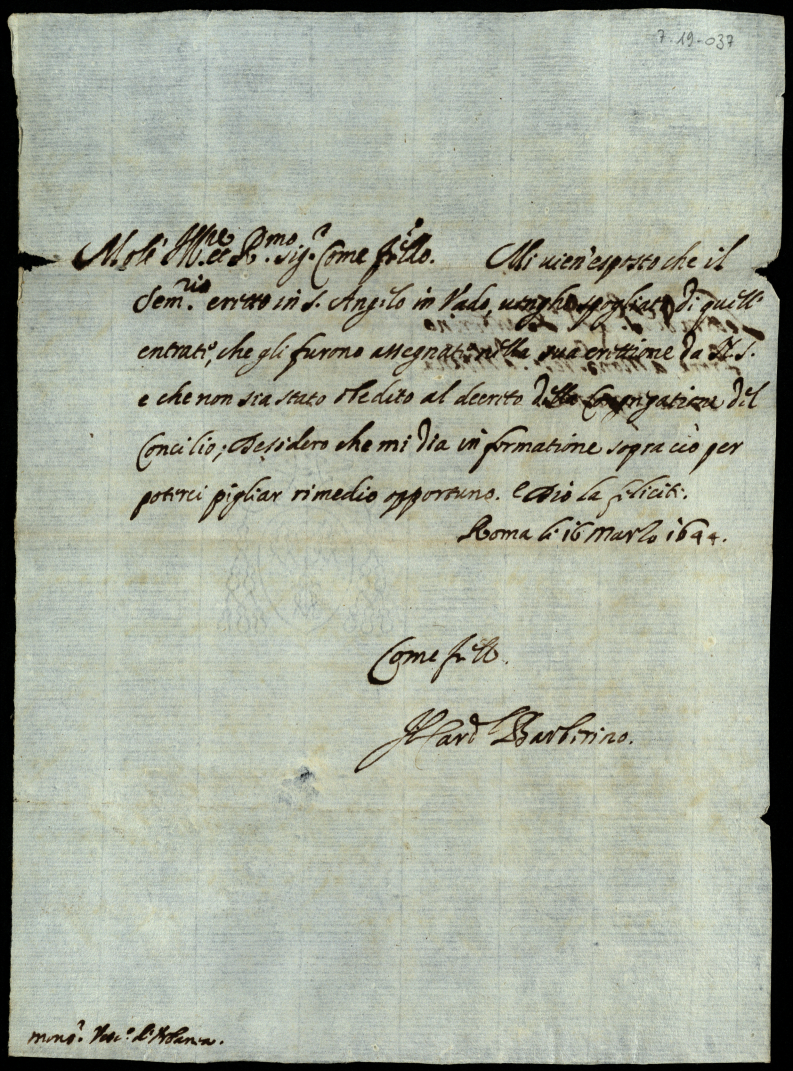 7-19-037
Molt' Ill.re et R.mo Sig.r Come fr̃ello. Mi vien' esposto che il
Sem.rio eretto in S. Angelo in Vado, venghi spogliato di quell'
entrate, che gli furono assegnate nella sua erettione da N. S.
e che non sia stato obedito al decreto della Congregatione del
Concilio; Desidero che mi dia informatione sopra ciò per
poterci pigliar rimedio opportuno. e Dio la feliciti.
Roma li 16 Marzo 1644.
Come fr̃ello.
Il Card Barberino.
mons.r Vesc.o d'Urbania.